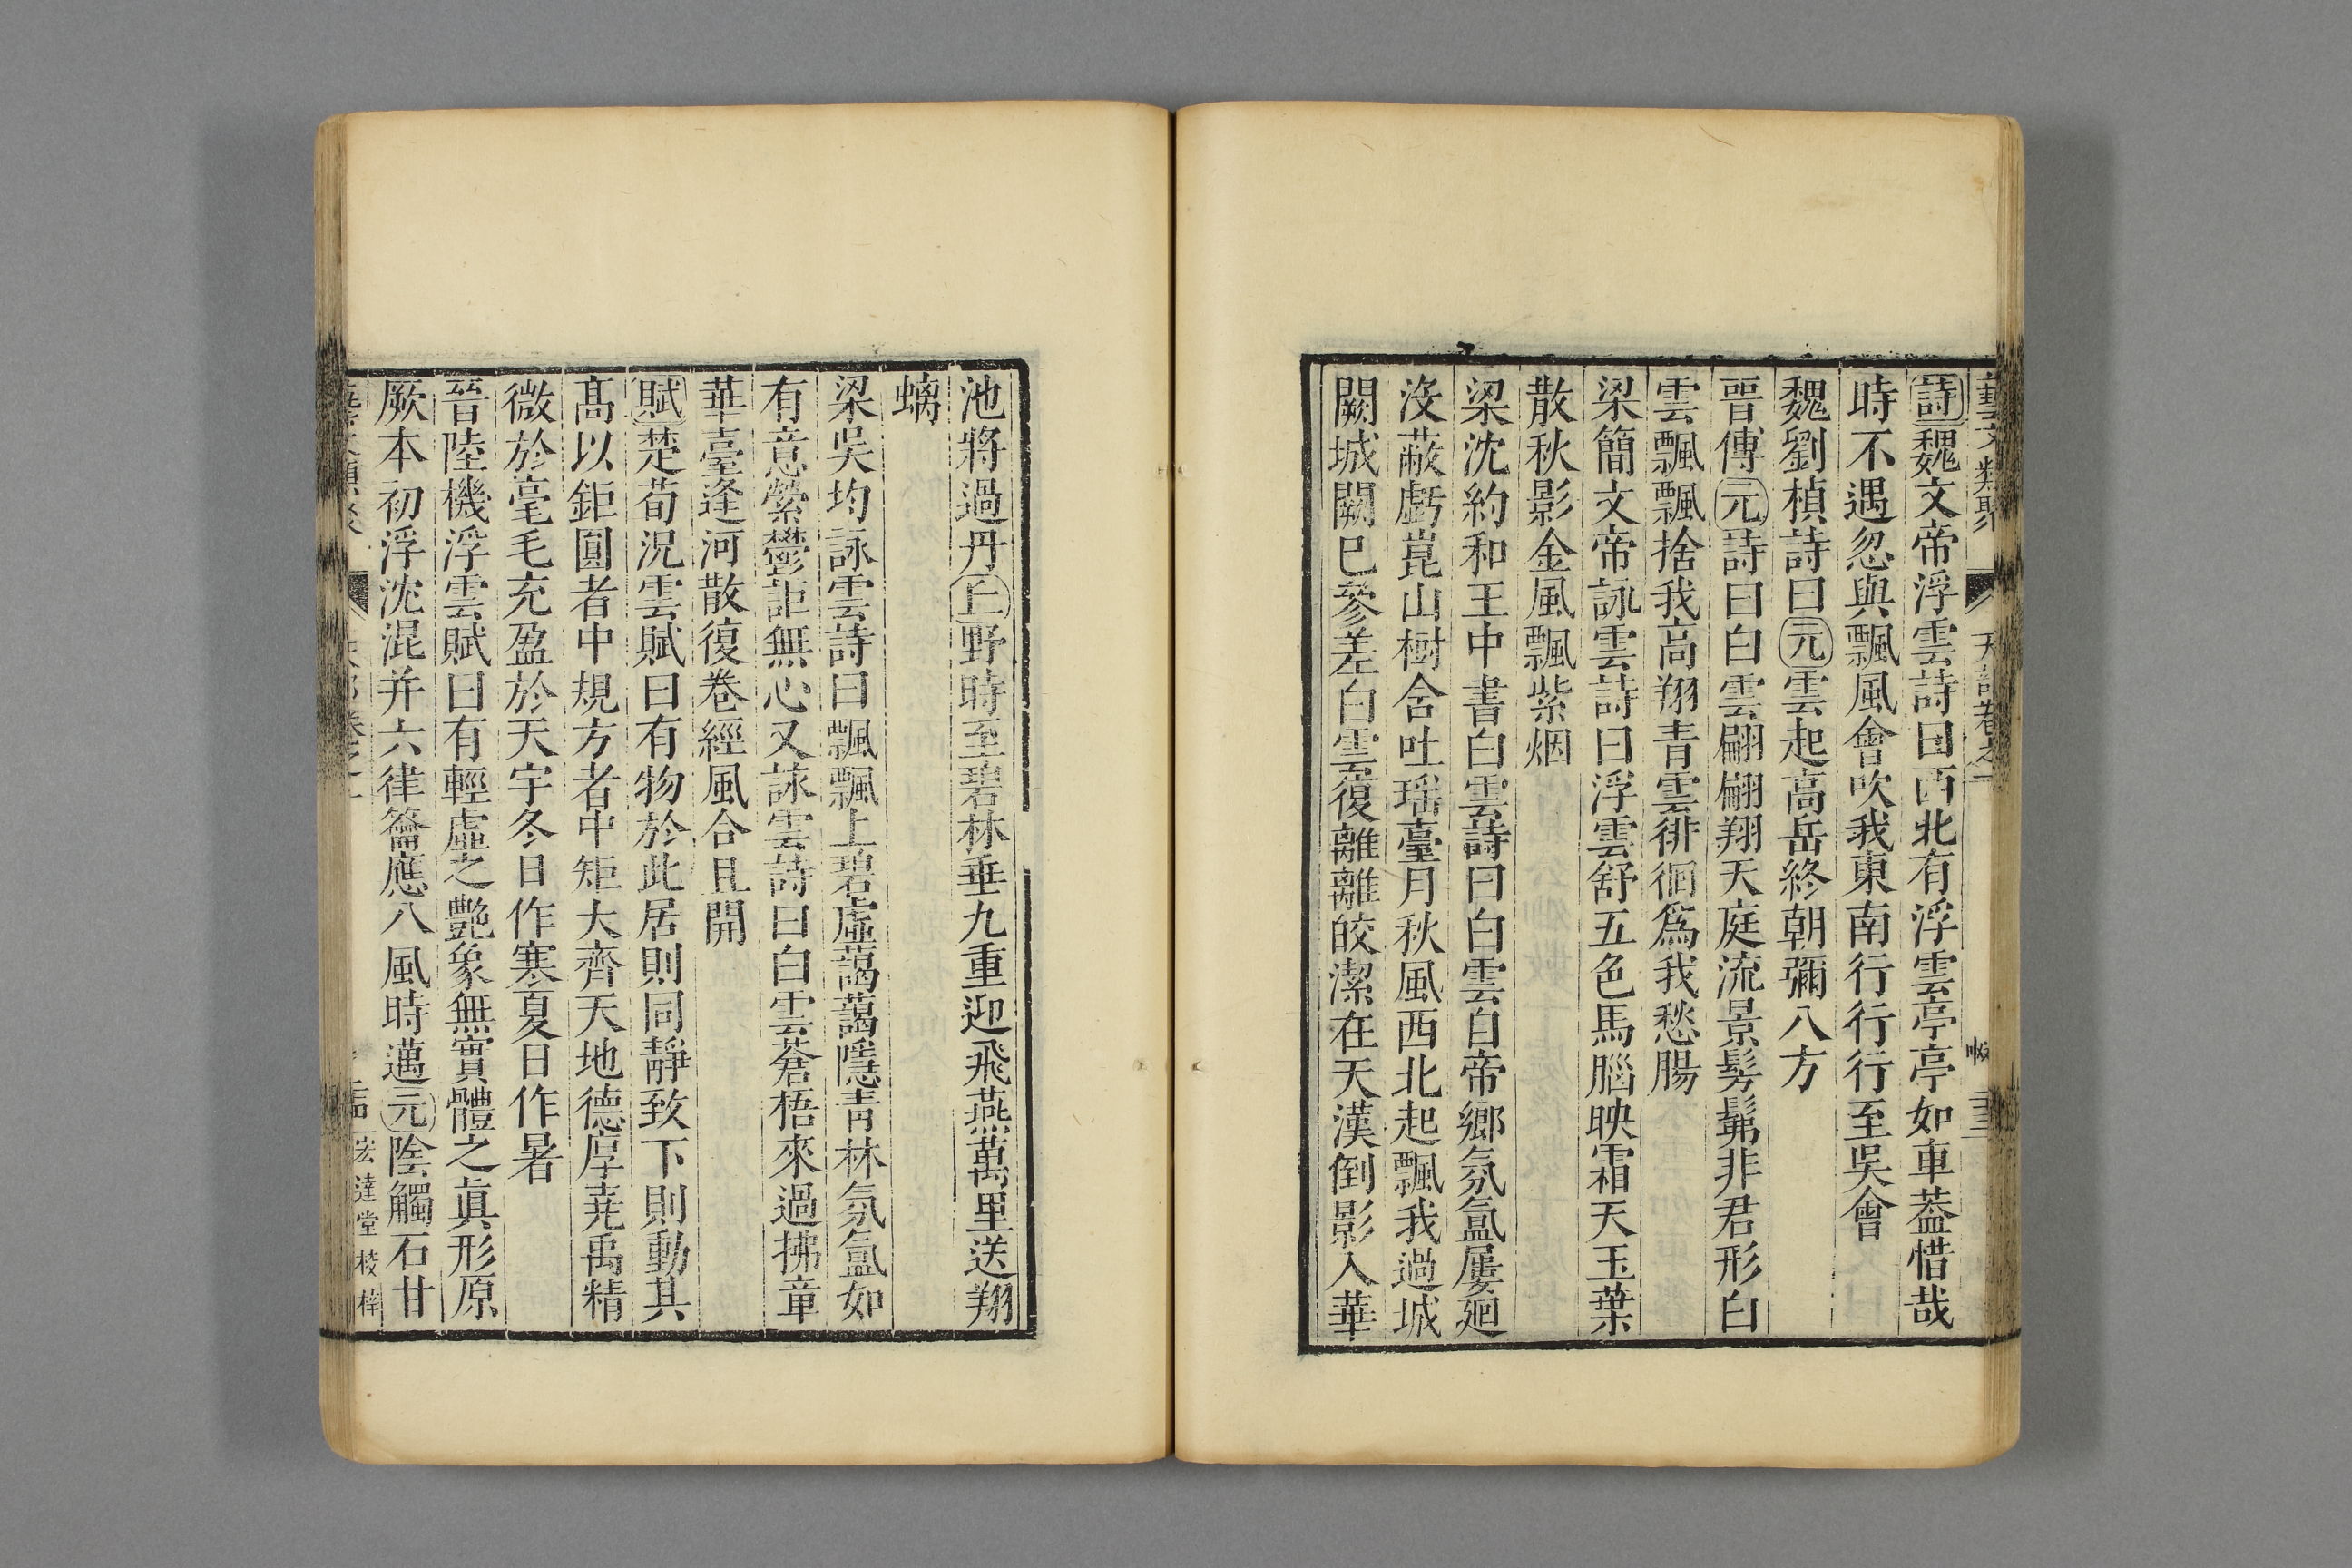 藝文類聚 天部卷之一
詩魏文帝浮雲詩曰西北有浮雲亭亭如車葢惜哉
時不遇忽與飄風會吹我東南行行行至吳會
魏劉楨詩曰元雲起高岳終朝彌八方
晉傅元詩曰白雲翩翩翔天庭流景髣髴非君形白
雲飄飄捨我高翔青雲徘徊爲我愁腸
梁簡文帝詠雲詩曰浮雲舒五色馬腦映霜天玉葉
散秋影金風飄紫烟
梁沈約和王中書白雲詩曰白雲自帝鄉氛氳屢廻
沒蔽虧崑山樹含吐瑶臺月秋風西北起飄我過城
闕城闕已參差白雲復離離皎潔在天漢倒影入華
池將過丹丘野時至碧林垂九重迎飛燕萬里送翔
螭
梁吳均詠雲詩曰飄飄上碧虛藹藹隱青林氛氳如
有意縈鬱詎無心又詠雲詩曰白雲蒼梧來過拂章
華臺逢河散復卷經風合且開
賦楚荀況雲賦曰有物於此居則同靜致下則動其
髙以鉅圓者中規方者中矩大齊天地德厚尭禹精
微於毫毛充盈於天宇冬日作寒夏日作暑
晉陸機浮雲賦曰有輕虛之艷象無實體之眞形原
厥本初浮沈混并六律籥應八風時邁元陰觸石甘
宏達堂校梓